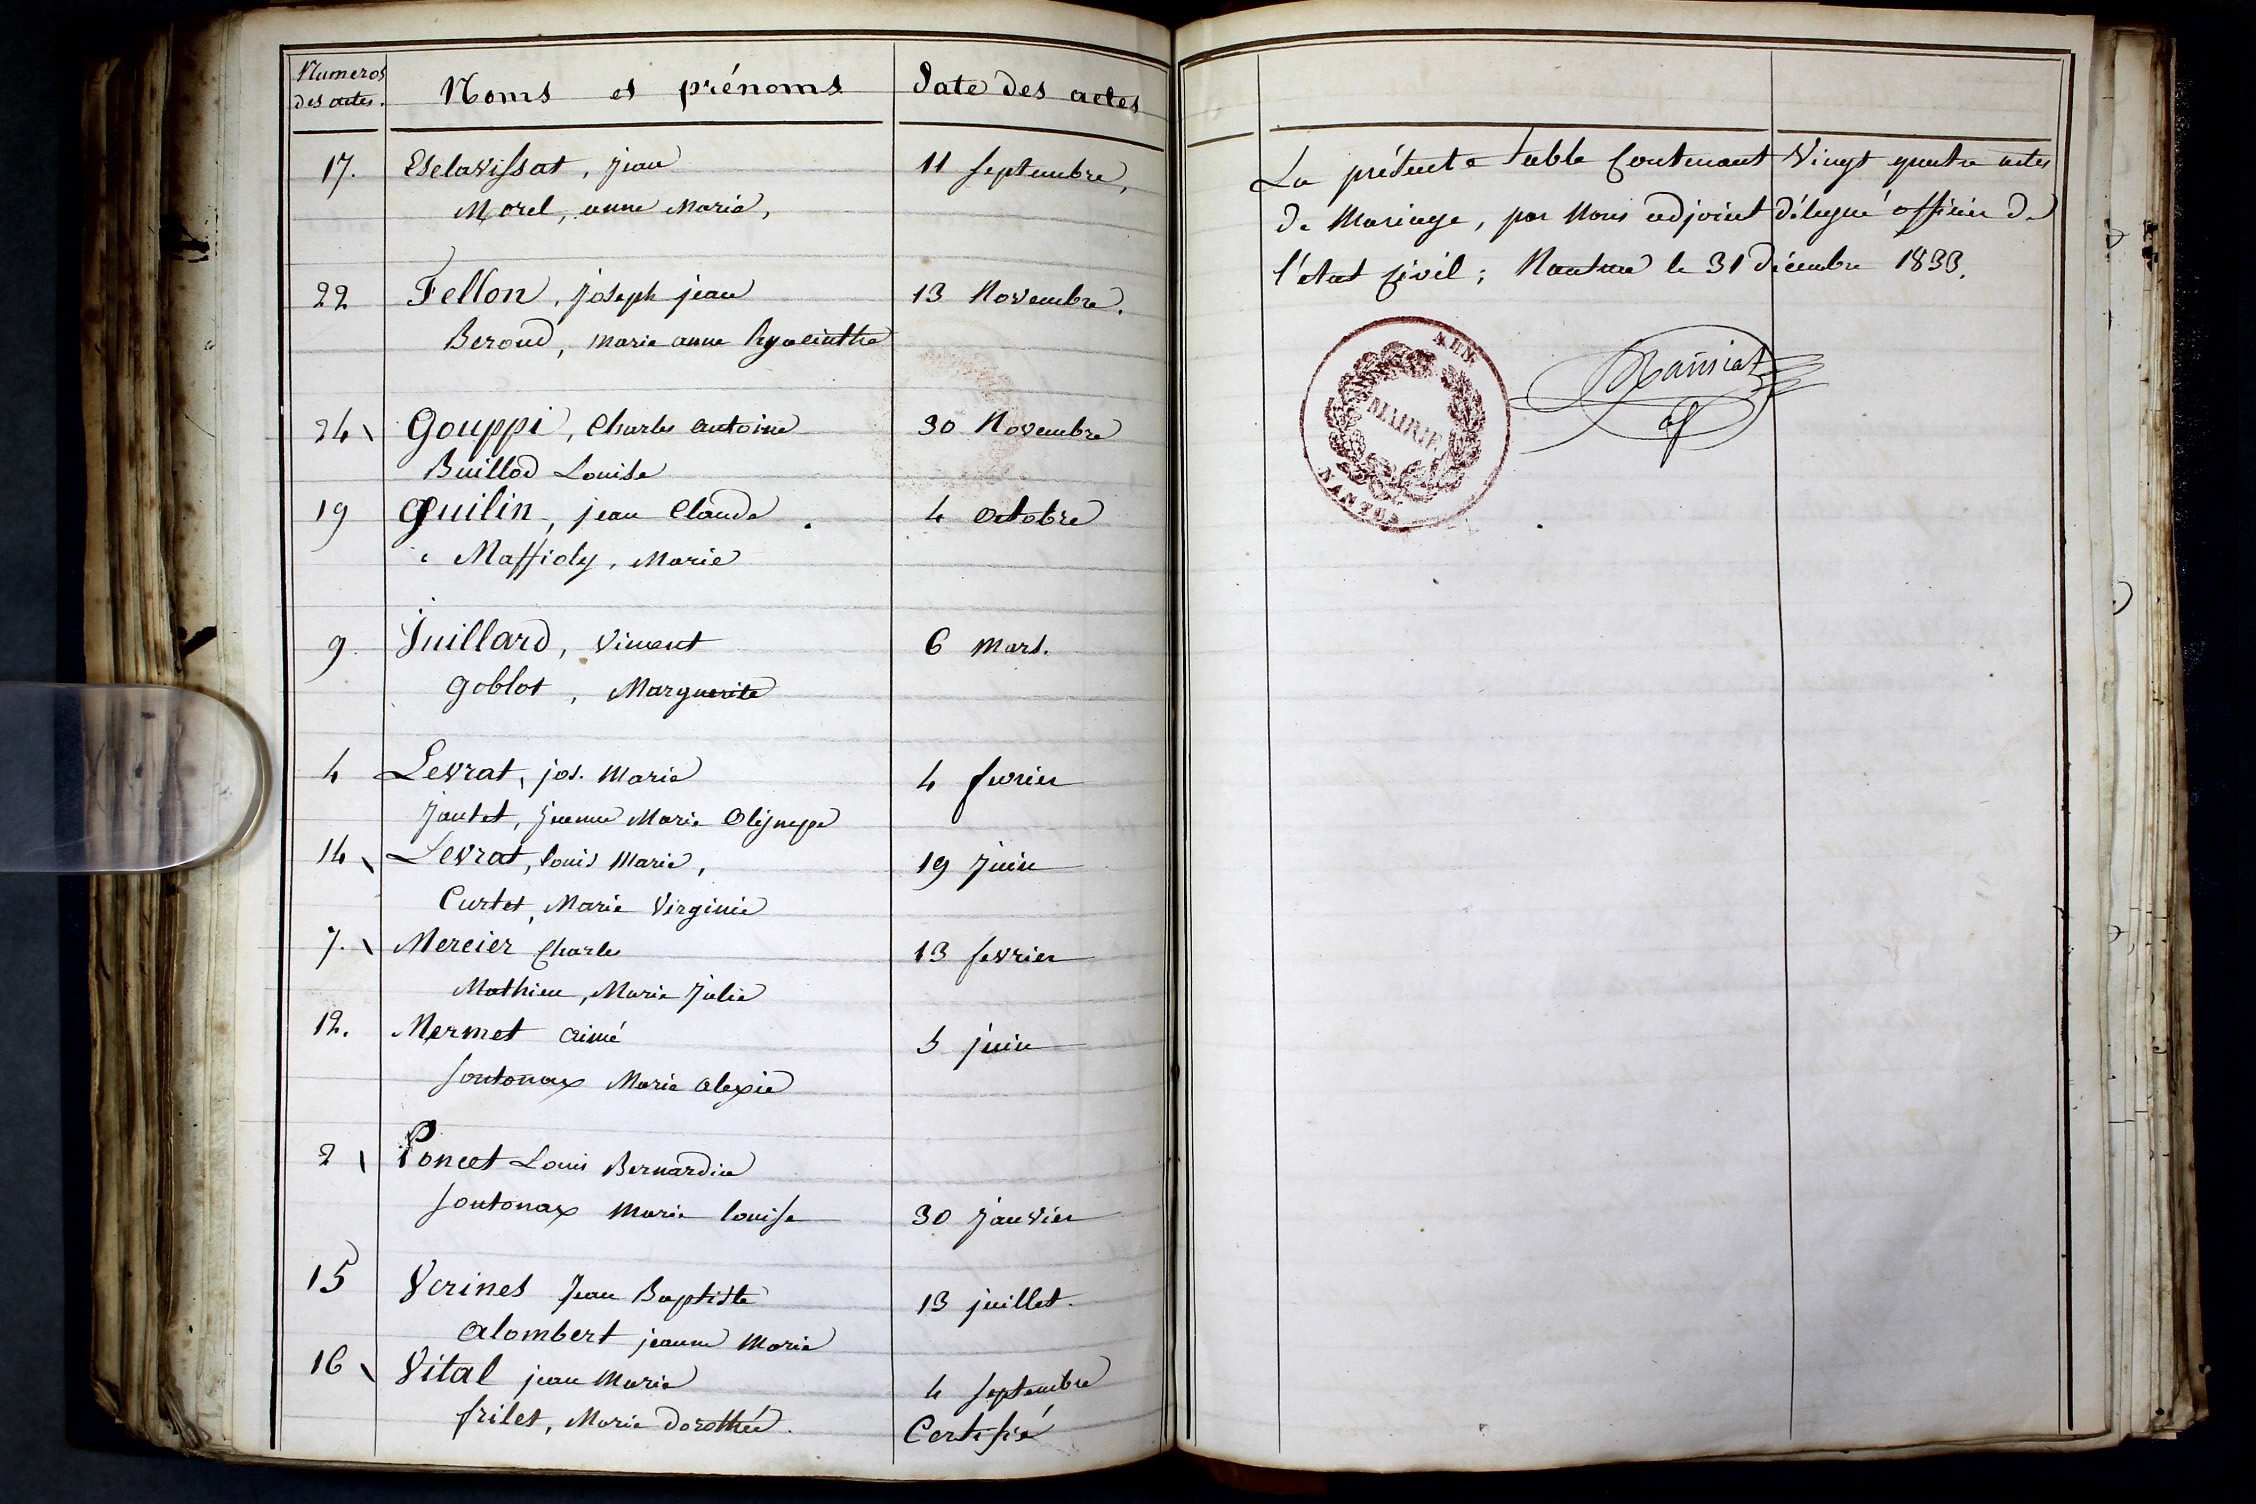 Numeros des actes. Noms et prénoms Date des actes
17. Esclavissat, jean 11 septembre,
Morel, anne Marie,
22 Fellon, joseph jean 13 Novembre.
Beroud, marie anne hyacinthe
24 Gouppi, Charles antoine 30 Novembre
Buillod Louise
19 Guilin, jean Claude 4 Octobre
Maffioly, Marie
9. Juillard, Vincent 6 Mars.
Goblot, Marguerite
4 Levrat, jos. Marie 4 fevrier
Jantet, jeanne Marie Olympe
14 Levrat, louis Marie, 19 Juin
Curtet, Marie Virginie
7. Mercier Charles 13 fevrier
Mathieu, Marie Julie
12. Mermet aimé 5 juin
Sontonax Marie alexie
2 Poncet Louis Bernardin
Sontonax Marie louise 30 Janvier
15 Verines Jean Baptiste 13 juillet.
Alombert jeanne Marie
16 Vital jean Marie 4 septembre
frilet, Marie dorothée. Certifié
La présente Table Contenant Vingt quatre actes
de Mariage, par Nous adjoint délégué officier de
l'état Civil; Nantua le 31 décembre 1833.
AIN.
MAIRIE
NANTUA